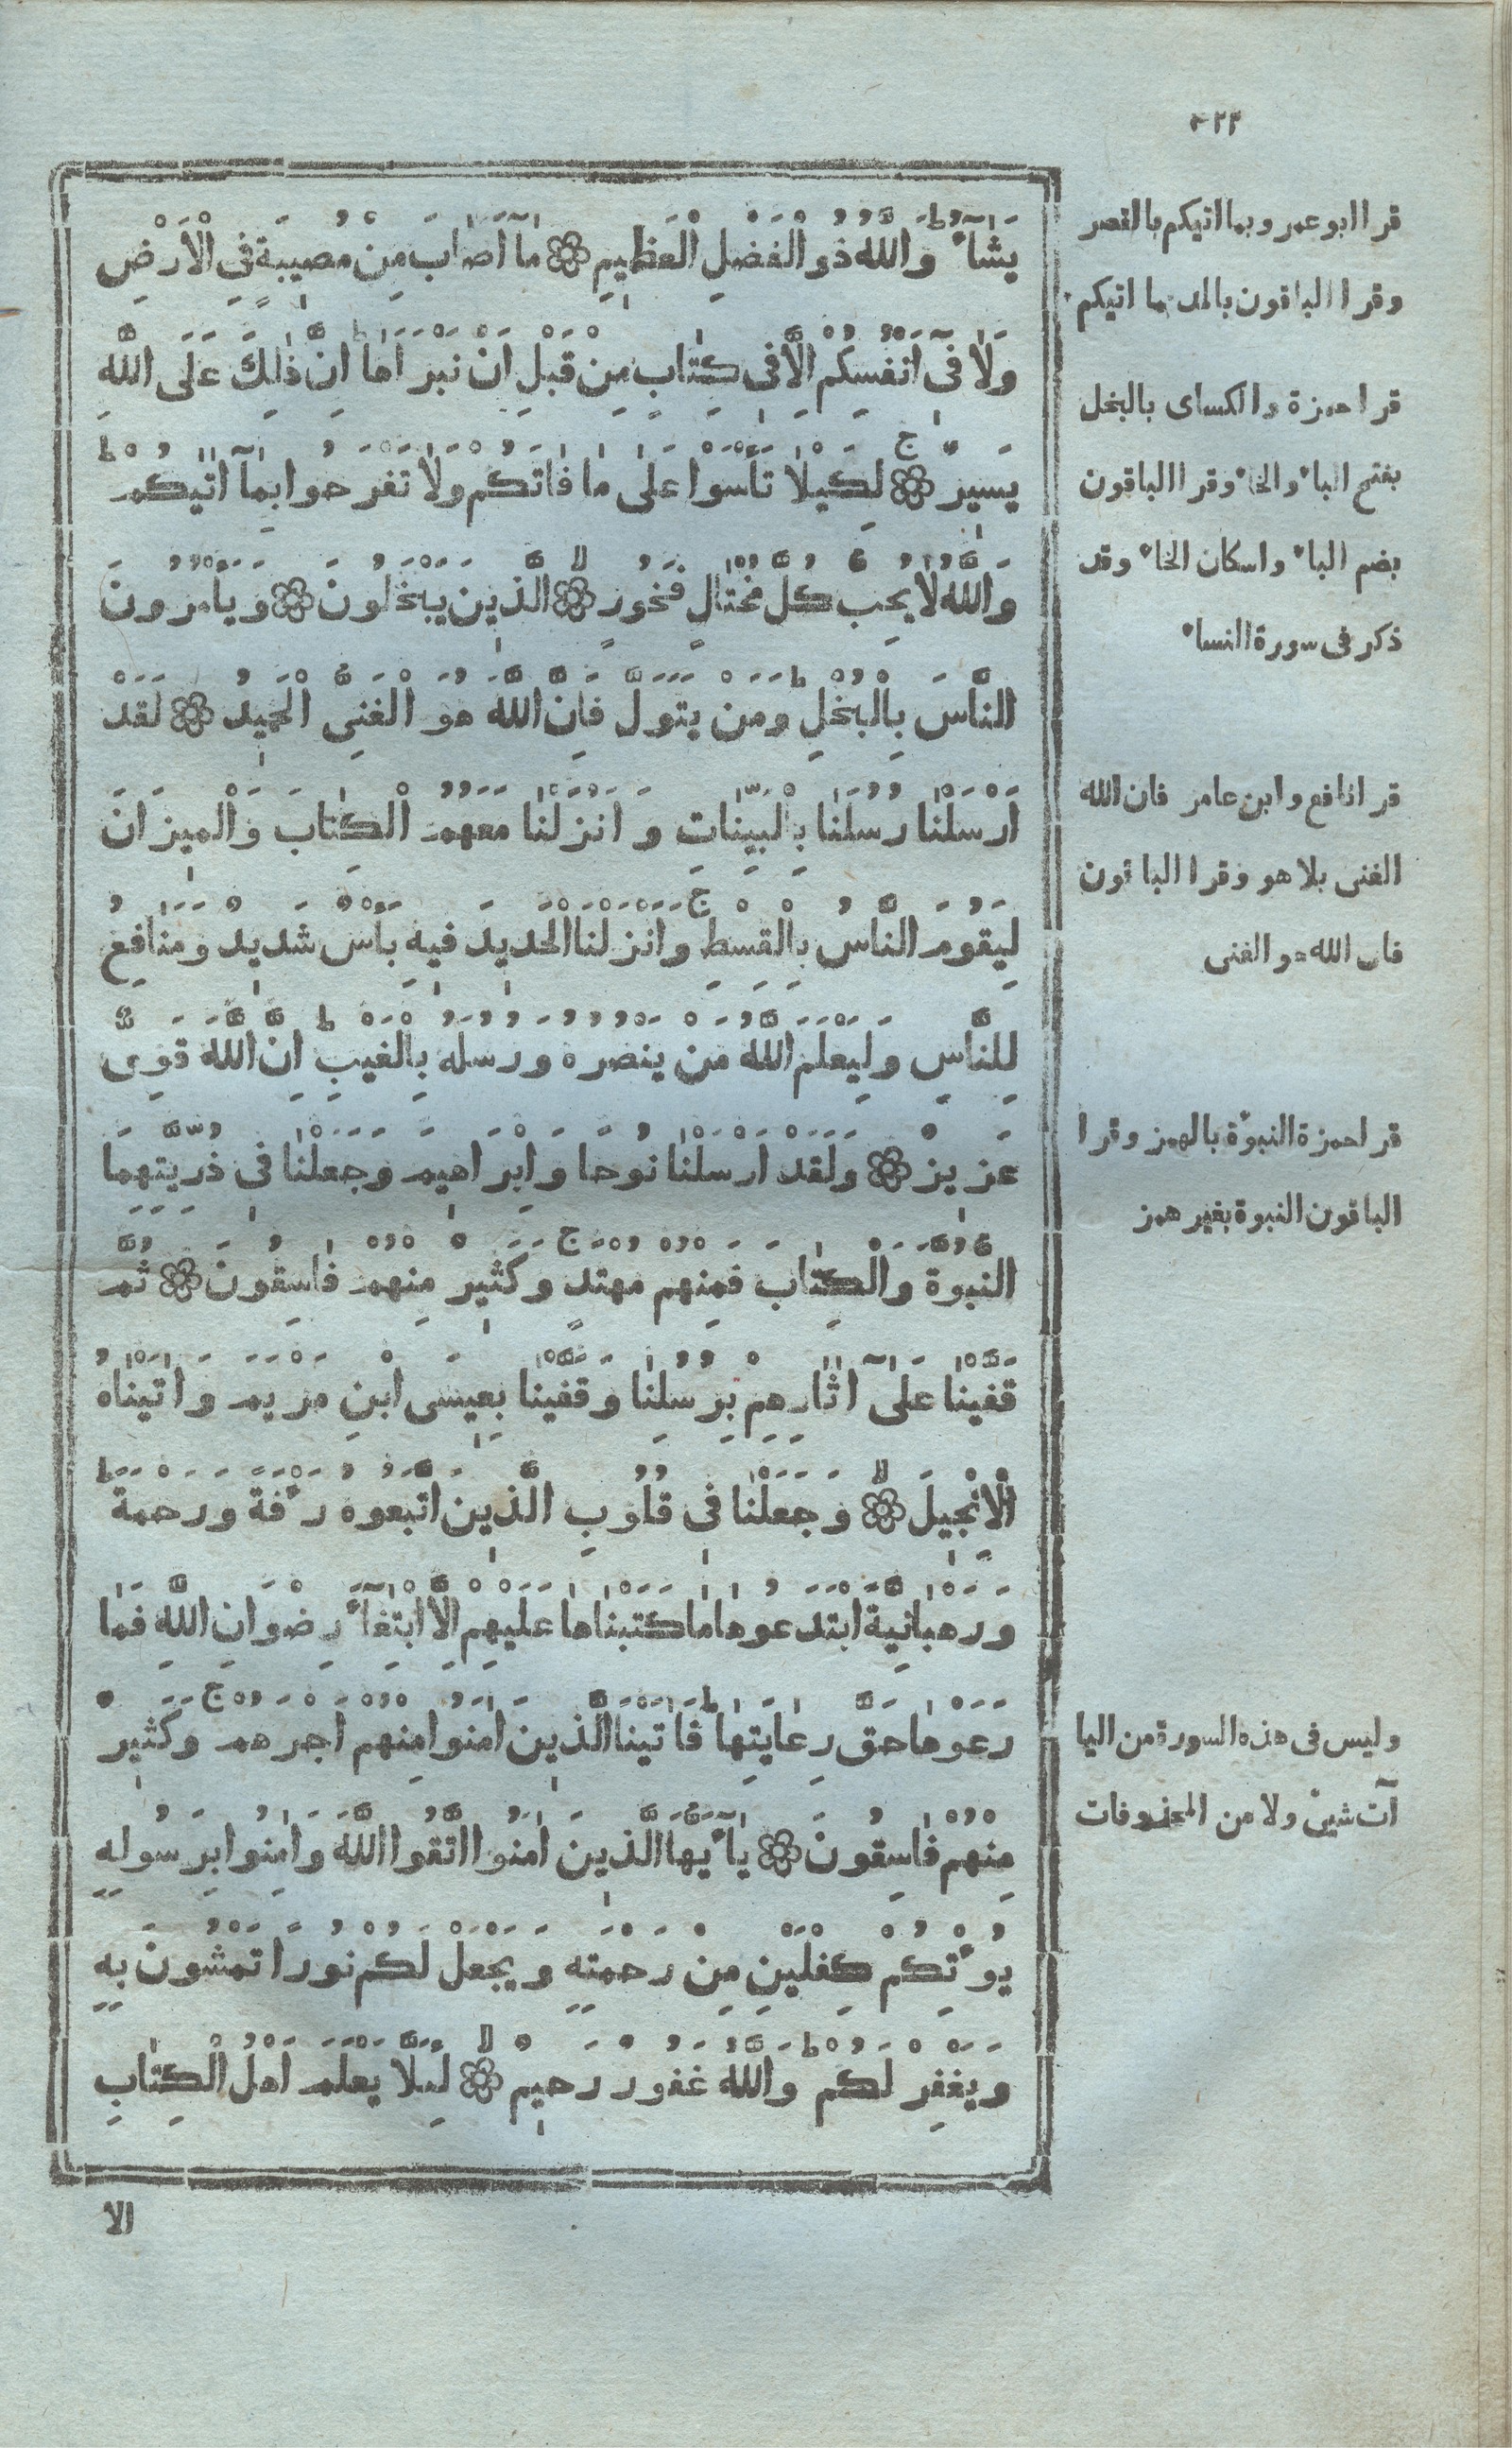 ٤٢٢
يَشَآءُ وَاللّٰهُ ذُو الْفَضْلِ الْعَظِيمِ ۞ مَآ اَصَابَ مِنْ مُصِيبَةٍ فِى الْاَرْضِ
وَلَا فِىٓ اَنْفُسِكُمْ اِلَّا فِى كِتَابٍ مِنْ قَبْلِ اَنْ نَبْرَاَهَا ط اِنَّ ذٰلِكَ عَلَى اللّٰهِ
يَسِيرٌ ۞ ج لِكَيْلَا تَأْسَوْا عَلَى مَا فَاتَكُمْ وَلَا تَفْرَحُوا بِمَآ اٰتٰيكُمْ ط
وَاللّٰهُ لَا يُحِبُّ كُلَّ مُخْتَالٍ فَخُورٍ ۞ لا الَّذِينَ يَبْخَلُونَ ۞ وَيَأْمُرُونَ
النَّاسَ بِالْبُخْلِ ط وَمَنْ يَتَوَلَّ فَاِنَّ اللّٰهَ هُوَ الْغَنِىُّ الْحَمِيدُ ۞ لَقَدْ
اَرْسَلْنَا رُسُلَنَا بِالْبَيِّنَاتِ وَاَنْزَلْنَا مَعَهُمُ الْكِتَابَ وَالْمِيزَانَ
لِيَقُومَ النَّاسُ بِالْقِسْطِ ج وَاَنْزَلْنَا الْحَدِيدَ فِيهِ بَأْسٌ شَدِيدٌ وَمَنَافِعُ
لِلنَّاسِ وَلِيَعْلَمَ اللّٰهُ مَنْ يَنْصُرُهُ وَرُسُلَهُ بِالْغَيْبِ ط اِنَّ اللّٰهَ قَوِىٌّ
عَزِيزٌ ۞ وَلَقَدْ اَرْسَلْنَا نُوحًا وَاِبْرَاهِيمَ وَجَعَلْنَا فِى ذُرِّيَّتِهِمَا
النُّبُوَّةَ وَالْكِتَابَ فَمِنْهُمْ مُهْتَدٍ ج وَكَثِيرٌ مِنْهُمْ فَاسِقُونَ ۞ ثُمَّ
قَفَّيْنَا عَلَىٓ اٰثَارِهِمْ بِرُسُلِنَا وَقَفَّيْنَا بِعِيسَى ابْنِ مَرْيَمَ وَاٰتَيْنَاهُ
الْاِنْجِيلَ ۞ لا وَجَعَلْنَا فِى قُلُوبِ الَّذِينَ اتَّبَعُوهُ رَأْفَةً وَرَحْمَةً ط
وَرَهْبَانِيَّةً ابْتَدَعُوهَا مَا كَتَبْنَاهَا عَلَيْهِمْ اِلَّا ابْتِغَآءَ رِضْوَانِ اللّٰهِ فَمَا
رَعَوْهَا حَقَّ رِعَايَتِهَا ط فَاٰتَيْنَا الَّذِينَ اٰمَنُوا مِنْهُمْ اَجْرَهُمْ ج وَكَثِيرٌ
مِنْهُمْ فَاسِقُونَ ۞ يَآ اَيُّهَا الَّذِينَ اٰمَنُوا اتَّقُوا اللّٰهَ وَاٰمِنُوا بِرَسُولِهِ
يُؤْتِكُمْ كِفْلَيْنِ مِنْ رَحْمَتِهِ وَيَجْعَلْ لَكُمْ نُورًا تَمْشُونَ بِهِ
وَيَغْفِرْ لَكُمْ ط وَاللّٰهُ غَفُورٌ رَحِيمٌ ۞ لا لِئَلَّا يَعْلَمَ اَهْلُ الْكِتَابِ
الا
قرا ابو عمرو بما اتيكم بالقصر
وقرا الباقون بالمد بما اتيكم
قرا حمزة والكساى بالبخل
بفتح الباء والخاء وقرا الباقون
بضم الباء واسكان الخاء وقد
ذكر فى سورة النساء
قرا نافع وابن عامر فان الله
الغنى بلا هو وقرا الباقون
فان الله هو الغنى
قرا حمزة النبوّة بالهمز وقرا
الباقون النبوة بغير همز
وليس فى هذه السورة من اليا
آت شيئ ولا من المحذوفات